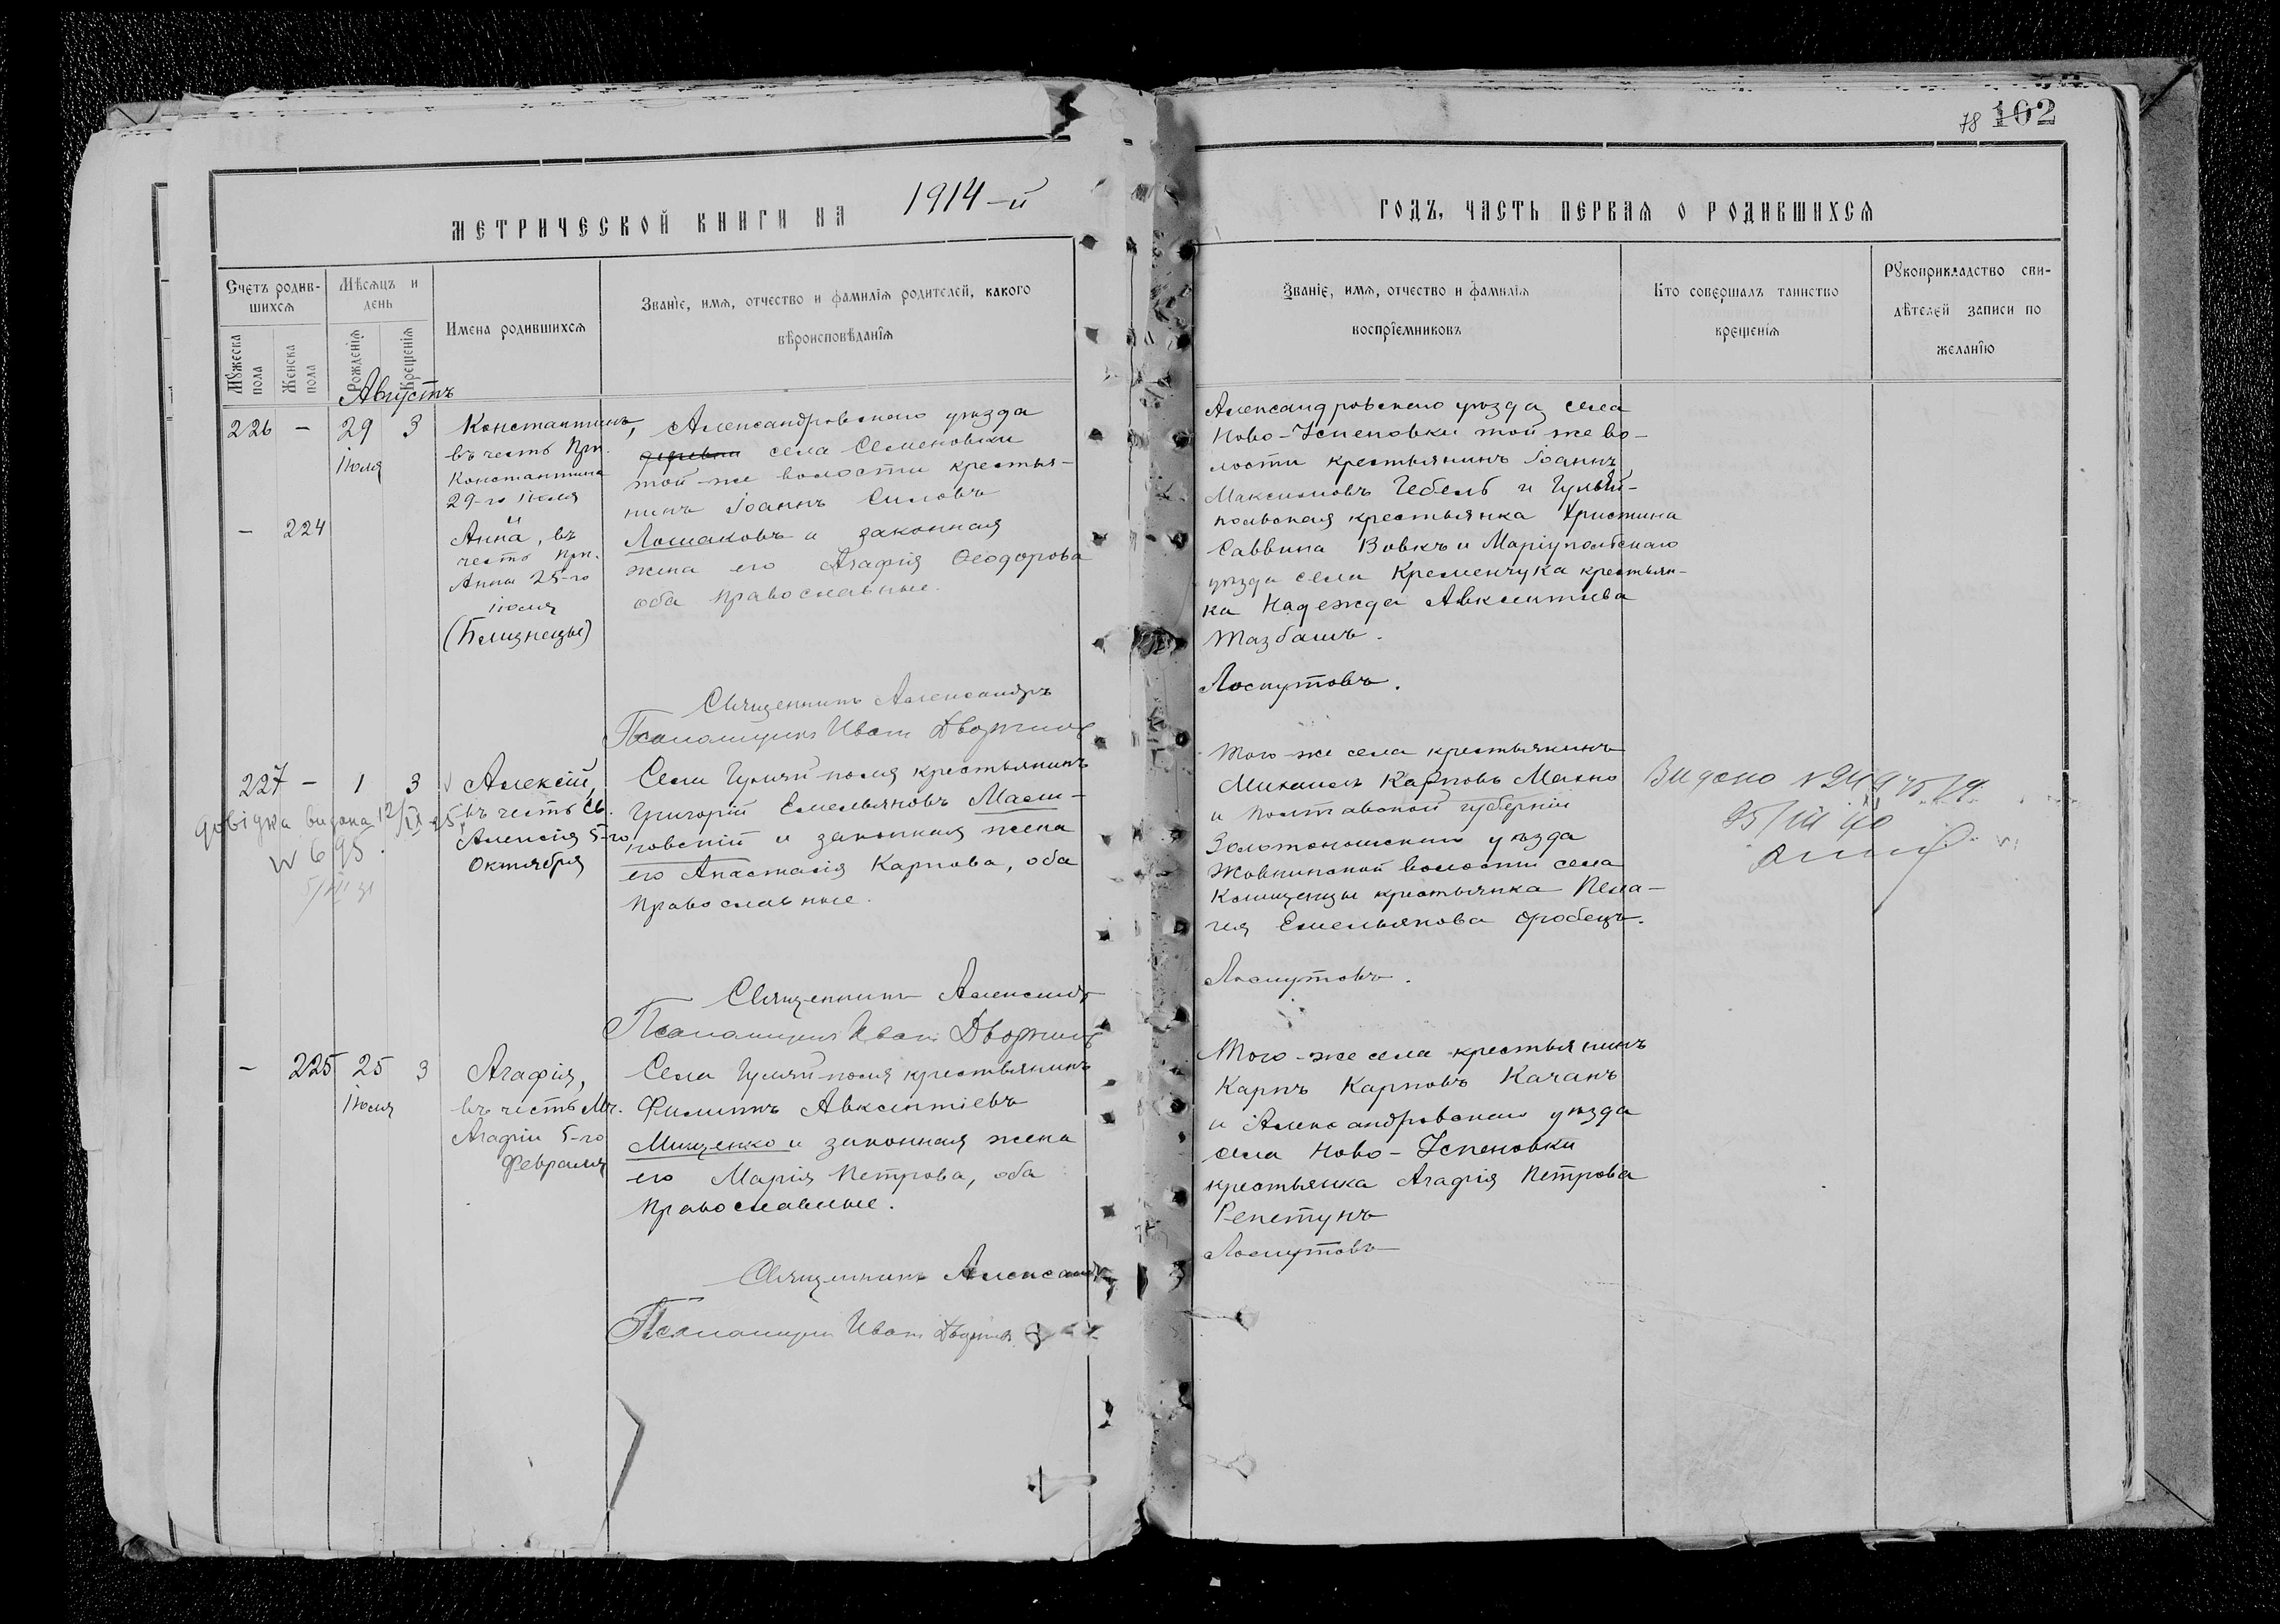 78 102
МЕТРИЧЕСКОЙ КНИГИ НА 1914-й
ГОДЪ, ЧАСТЬ ПЕРВАЯ О РОДИВШИХСЯ
Счетъ родив-
шихся
Мужеска пола
Женска пола
Мѣсяцъ и
день
Рожденія
Крещенія
Имена родившихся
Званіе, имя, отчество и фамилія родителей, какого
вѣроисповѣданія
Званіе, имя, отчество и фамилія
воспріемниковъ
Кто совершалъ таинство
крещенія
Рукоприкладство сви-
дѣтелей записи по
желанію
Августъ
226 - 29 3
Іюля
Константинъ,
въ честь Прп.
Константина
29-го Іюля
- 224
Анна, въ
честь прп.
Анны 25-го
іюля
(Близнецы)
Александровскаго уѣзда
деревни села Семеновки
той-же волости крестья-
нинъ Іоаннъ Силовъ
Лошаковъ и законная
жена его Агафія Ѳеодорова
оба православные.
Священникъ Александръ
Псаломщикъ Иванъ
Александровскаго уѣзда, села
Ново-Успеновки той же во-
лости крестьянинъ Іоаннъ
Максимовъ Чебель и Гуляй-
польская крестьянка Христина
Саввина Вовкъ и Маріупольскаго
уѣзда села Кременчука крестьян-
ка Надежда Авксентіева
Тазбашъ.
Лоскутовъ.
227 - 1 3
Довідка видана 12/IX
N 695.
Алексій,
въ честь Св.
Алексія 5-го
Октября
Села Гуляй-поля крестьянинъ
Григорій Емельяновъ Мали-
новскій и законная жена
его Анастасія Карпова, оба
православные.
Священникъ Александръ
Псаломщикъ Иванъ
Того-же села крестьянинъ
Михаилъ Карповъ Махно
и Полтавской губерніи
Золотоношскаго уѣзда
Жовнинской волости села
крестьянка Пела-
гія Емельянова
Лоскутовъ.
Видано
- 225 25 3
Іюля
Агафія,
въ честь Мч.
Агафіи 5-го
Февраля
Села Гуляй-поля крестьянинъ
Филиппъ Авксентіевъ
Мищенко и законная жена
его Марія Петрова, оба
православные.
Священникъ Александръ
Псаломщикъ Иванъ
Того-же села крестьянинъ
Карпъ Карповъ Качанъ
и Александровскаго уѣзда
села Ново-Успеновки
крестьянка Агафія Петрова
Репетунъ
Лоскутовъ